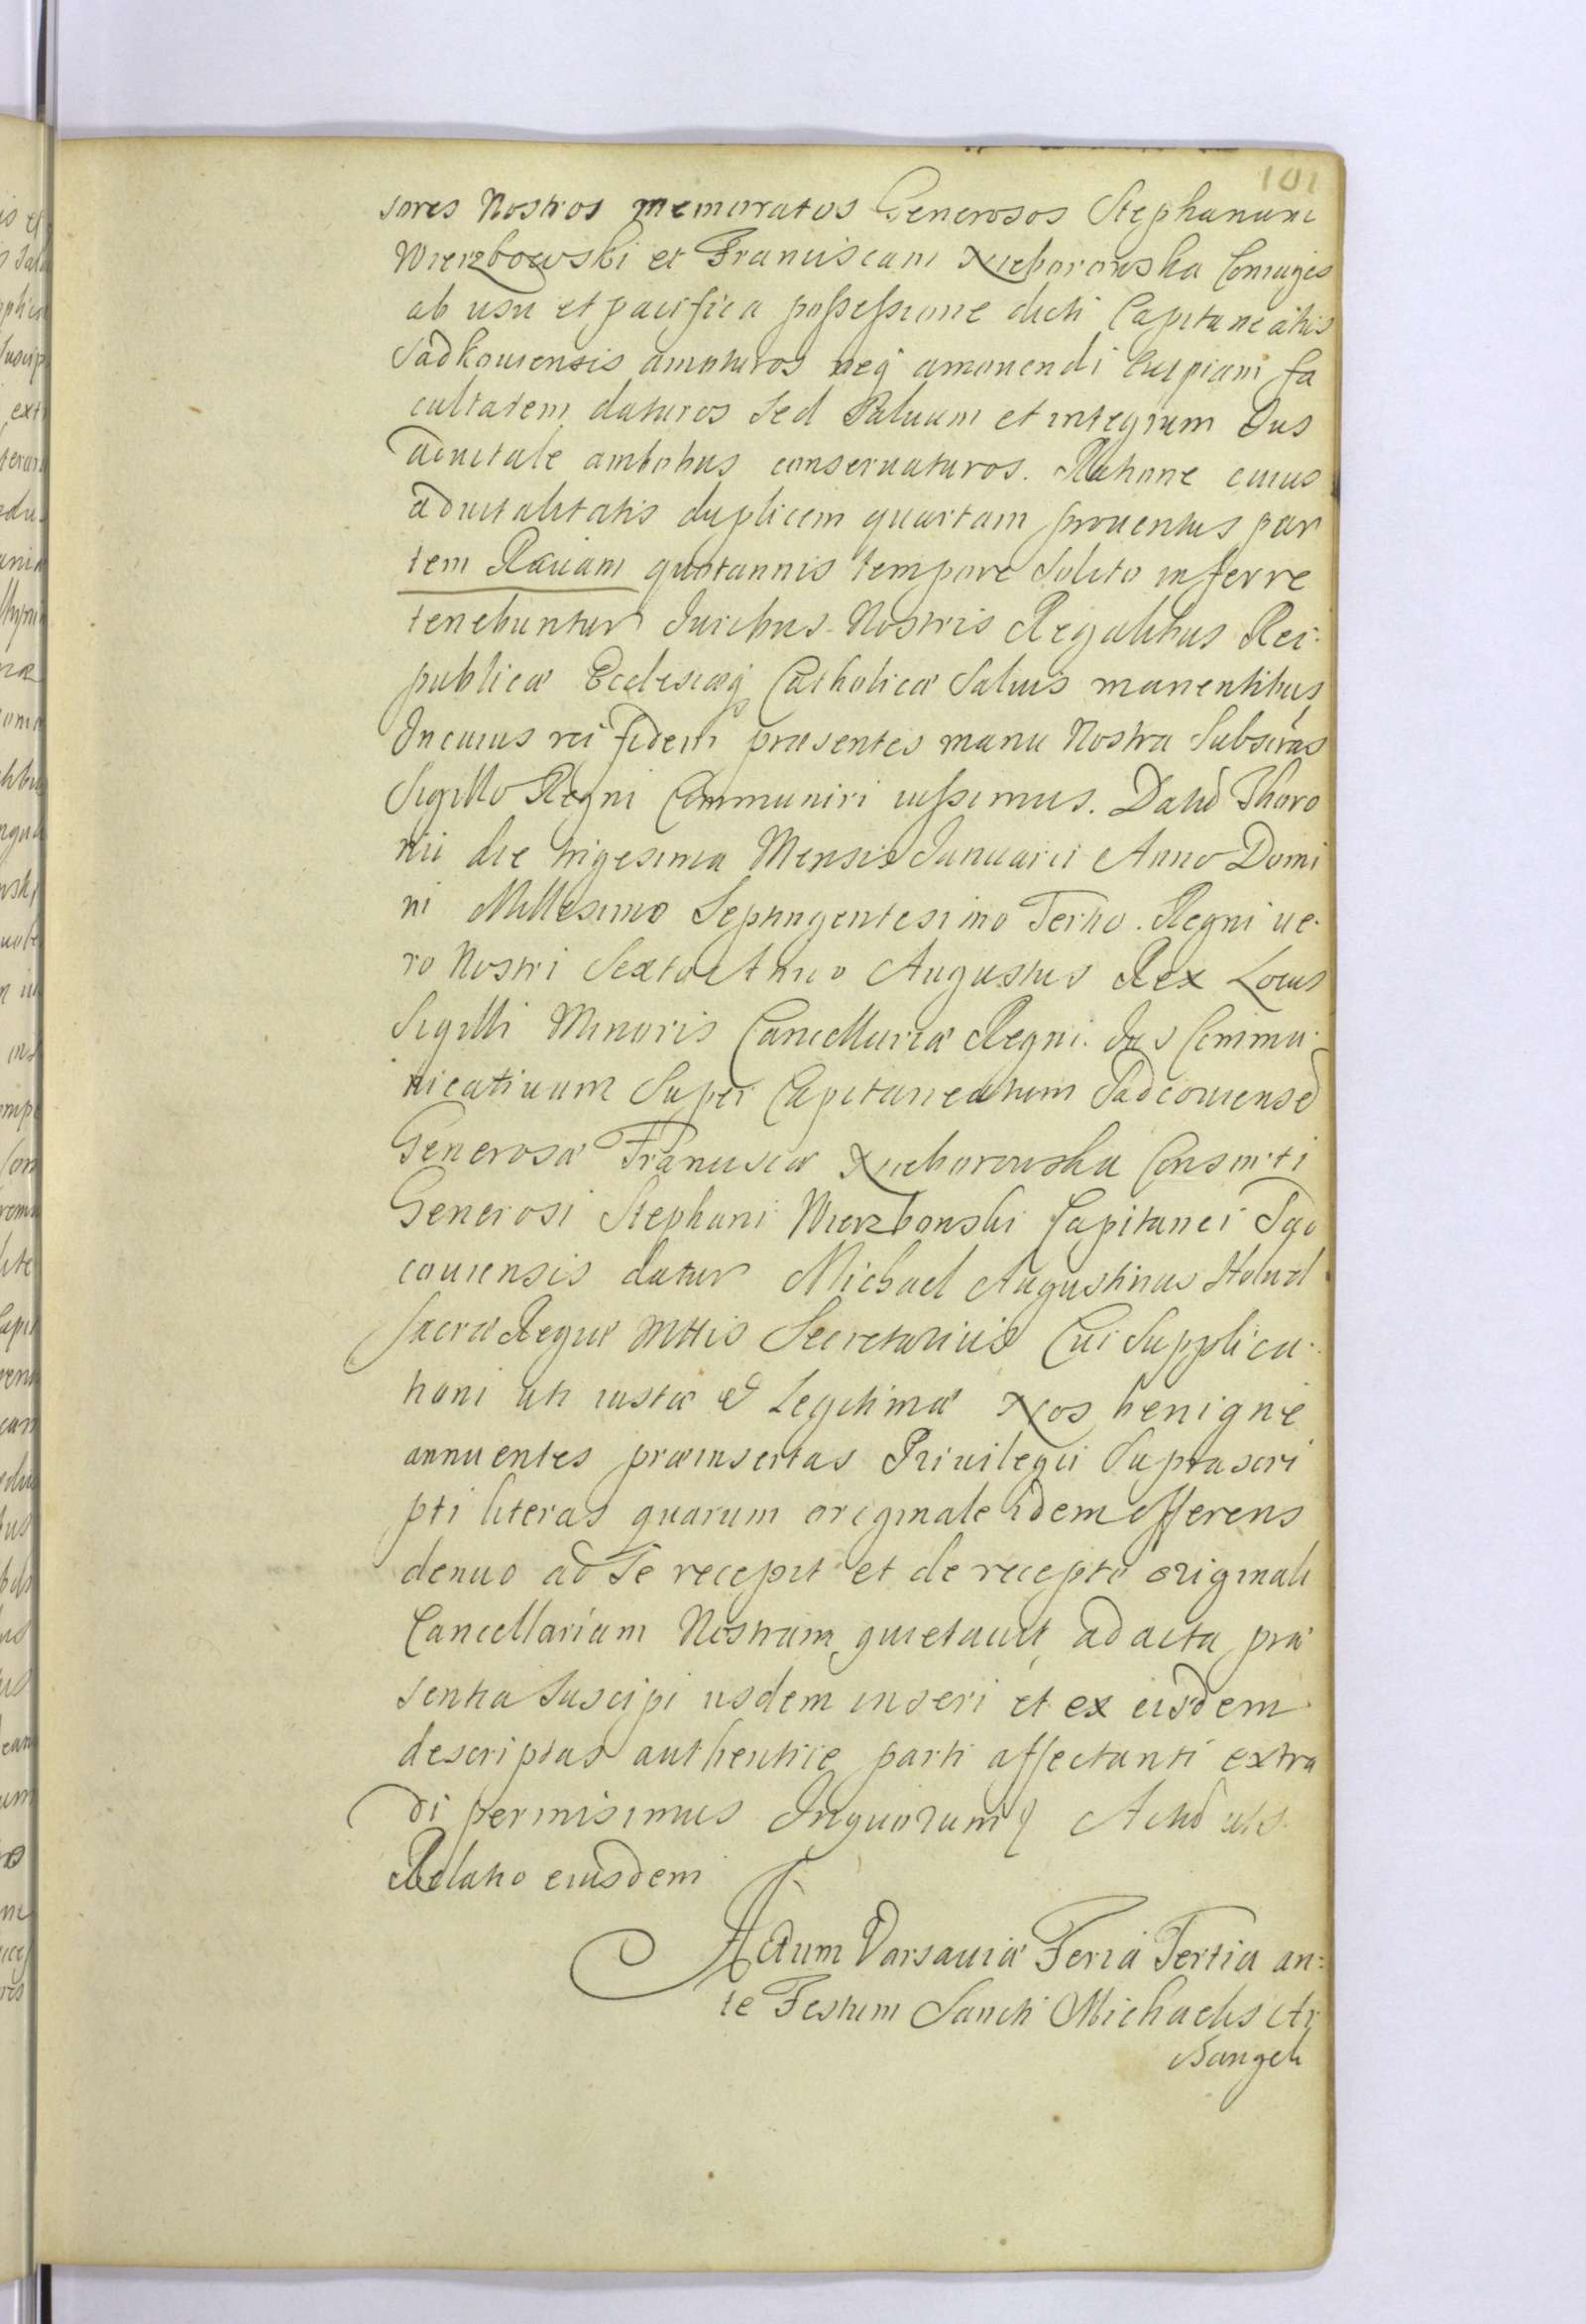 101
sores Nostros memoratos Generosos Stephanum
Wierzbowski et Franciscam Nieborowska Coniuges
ab usu et pacifica possessione dicti Capitaneatus
Sadkouiensis amoturos neq amouendi cuipiam fa
cultatem daturos Sed Saluum et integrum Jus
aduitale ambobus conseruaturos. Ratione cuius
aduitalitatis duplicem quartam prouentus par
tem Rauam quotannis tempore Solito inferre
tenebuntur Juribus Nostris Regalibus Rei:
publicæ Ecclesiæq Catholicæ Saluis manentibus
In cuius rei fidem præsentes manu Nostra Subscras
Sigillo Regni Communiri iussimus. Datũ Thoro
nii die trigesima Mensis Januarii Anno Domi
ni Millesimo Septingentesimo Tertio. Regni ue-
ro Nostri Sexto Anno Augustus Rex Locus
Sigilli Minoris Cancellariæ Regni. Jus Commu-
nicatiuum Super Capitaneatum Sadcouiensẽ
Generosæ Franciscæ Nieborowska Consorti
Generosi Stephani Wierzbowski Capitanei Sad
couiensis datur Michael Augustinus Holud
Sacræ Regiæ Mttis Secretarius Cui Supplica-
tioni uti iustæ et Legitimæ Nos benigne
annuentes præinsertas Priuilegii Suprascri
pti literas quarum originale idem offerens
denuo ad Se recepit et de recepto originali
Cancellariam Nostram quietauit, ad acta præ
sentia Suscipi iisdem inseri et ex eisdem
descriptas authentice parti affectanti extra
di permisimus In quorum Actũ uts.
Relatio eiusdem
Actum Varsauiæ Feria Tertia an:
te Festum Sancti Michaelis Ar
changeli